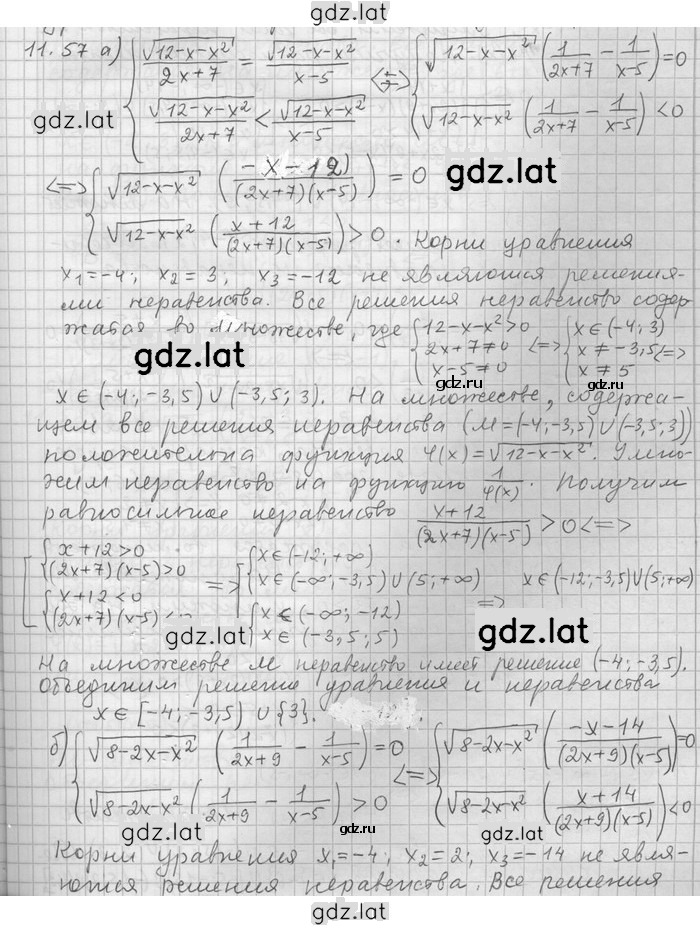 gdz.lat
11.57 а) { √(12-x-x²)/(2x+7) = √(12-x-x²)/(x-5) <=> { √(12-x-x²) (1/(2x+7) - 1/(x-5)) = 0
gdz.lat √(12-x-x²)/(2x+7) < √(12-x-x²)/(x-5) √(12-x-x²) (1/(2x+7) - 1/(x-5)) < 0
gdz.lat
<=> { √(12-x-x²) ((-x-12)/((2x+7)(x-5))) = 0 gdz.lat
√(12-x-x²) ((x+12)/((2x+7)(x-5))) > 0. Корни уравнения
x₁=-4; x₂=3; x₃=-12 не являются решения-
ми неравенства. Все решения неравенство содер-
жатся во множестве, где { 12-x-x²>0 <=> { x∈(-4;3)
gdz.lat 2x+7≠0 x≠-3,5 <=>
x-5≠0 x≠5
gdz.lat
x∈(-4;-3,5)∪(-3,5;3). На множестве, содержа-
щем все решения неравенства (M=(-4;-3,5)∪(-3,5;3))
положительна функция φ(x)=√(12-x-x²). Умно-
жим неравенство на функцию 1/φ(x). Получим
равносильное неравенство (x+12)/((2x+7)(x-5)) > 0 <=>
[ { x+12>0 => [ { x∈(-12;+∞)
(2x+7)(x-5)>0 x∈(-∞;-3,5)∪(5;+∞) x∈(-12;-3,5)∪(5;+∞)
{ x+12<0 { x∈(-∞;-12) =>
(2x+7)(x-5)< x∈(-3,5;5)
gdz.lat gdz.lat
На множестве M неравенство имеет решение (-4;-3,5).
Объединим решение уравнения и неравенства
x∈[-4;-3,5)∪{3}.
б) { √(8-2x-x²) (1/(2x+9) - 1/(x-5)) = 0 <=> { √(8-2x-x²) ((-x-14)/((2x+9)(x-5))) = 0
√(8-2x-x²) (1/(2x+9) - 1/(x-5)) > 0 √(8-2x-x²) ((x+14)/((2x+9)(x-5))) < 0
gdz.lat gdz.lat
gdz.lat
Корни уравнения x₁=-4; x₂=2; x₃=-14 не явля-
ются решения неравенства. Все решения
gdz.lat